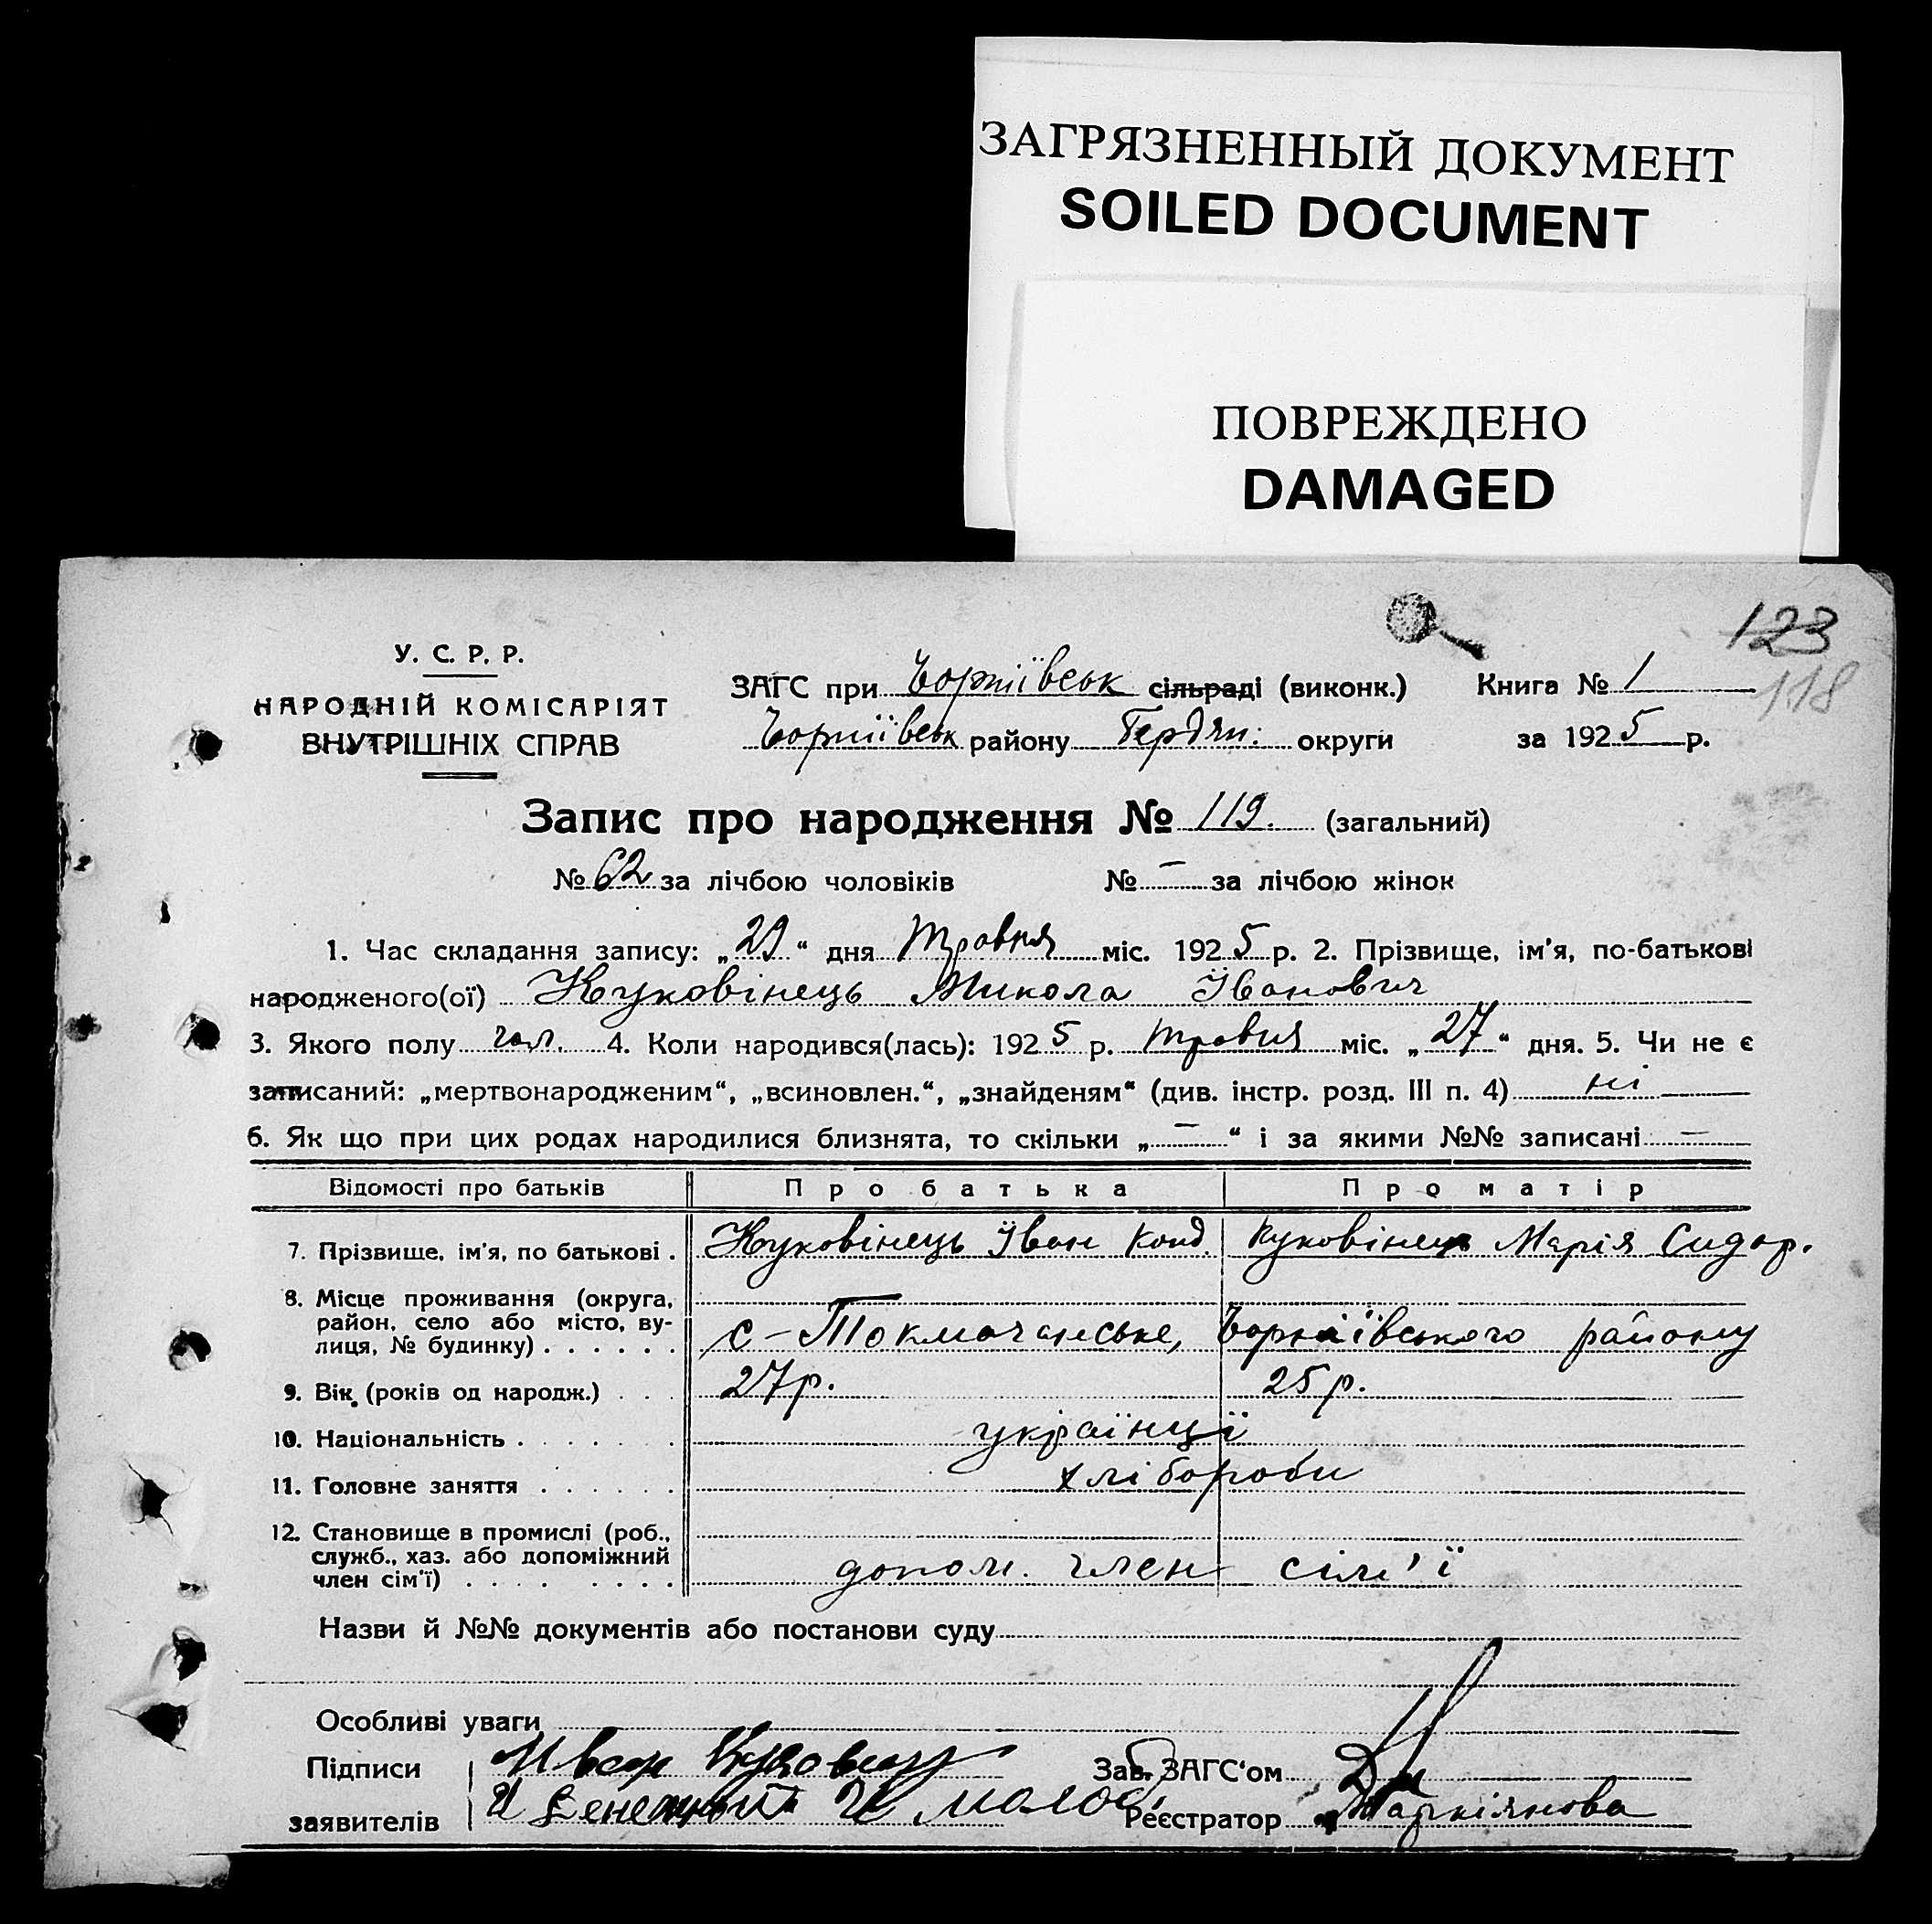 ЗАГРЯЗНЕННЫЙ ДОКУМЕНТ
SOILED DOCUMENT
ПОВРЕЖДЕНО
DAMAGED
123
118
У. С. Р. Р.
НАРОДНІЙ КОМІСАРІЯТ
ВНУТРІШНІХ СПРАВ
ЗАГС при Чорніївськ сільраді (виконк.) Книга № 1
Чорніївськ району Бердян. округи за 1925 р.
Запис про народження № 119. (загальний)
№ 62 за лічбою чоловіків № — за лічбою жінок
1. Час складання запису: „29“ дня Травня міс. 1925 р. 2. Прізвище, ім'я, по-батькові
народженого(ої) Куковінець Микола Іванович
3. Якого полу чол. 4. Коли народився(лась): 1925 р. травня міс. „27“ дня. 5. Чи не є
записаний: „мертвонародженим“, „всиновлен.“, „знайденям“ (див. інстр. розд. III п. 4) ні
6. Як що при цих родах народилися близнята, то скільки „—“ і за якими №№ записані —
Відомості про батьків Про батька Про матір
7. Прізвище, ім'я, по батькові . Куковінець Іван Конд. Куковінець Марія Сидор.
8. Місце проживання (округа,
район, село або місто, ву-
лиця, № будинку) . . . . . . с-Токмачанське, Чорніївського району
9. Вік (років од народж.) . . . 27 р. 25 р.
10. Національність . . . . . . . українці
11. Головне заняття . . . . . . хлібороби
12. Становище в промислі (роб.,
служб., хаз. або допоміжний
член сім'ї) . . . . . . . . . допом. член сім'ї
Назви й №№ документів або постанови суду
Особливі уваги
Підписи Иван Зав. ЗАГС'ом
заявителів Реєстратор Маркіянова